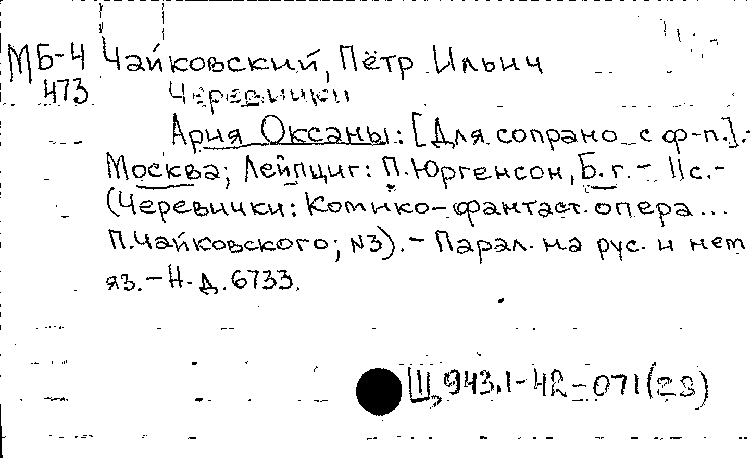 МБ-4 Чайковский, Пётр Ильич
473 Черевички
Ария Оксаны: [Для сопрано с ф-п.].-
Москва; Лейпциг: П. Юргенсон, Б.г. - 11с.-
(Черевички: Комико-фантаст. опера...
П. Чайковского; №3). - Парал. на рус. и нем
яз. - Н.д. 6733.
Щ 943.1-42-071(23)